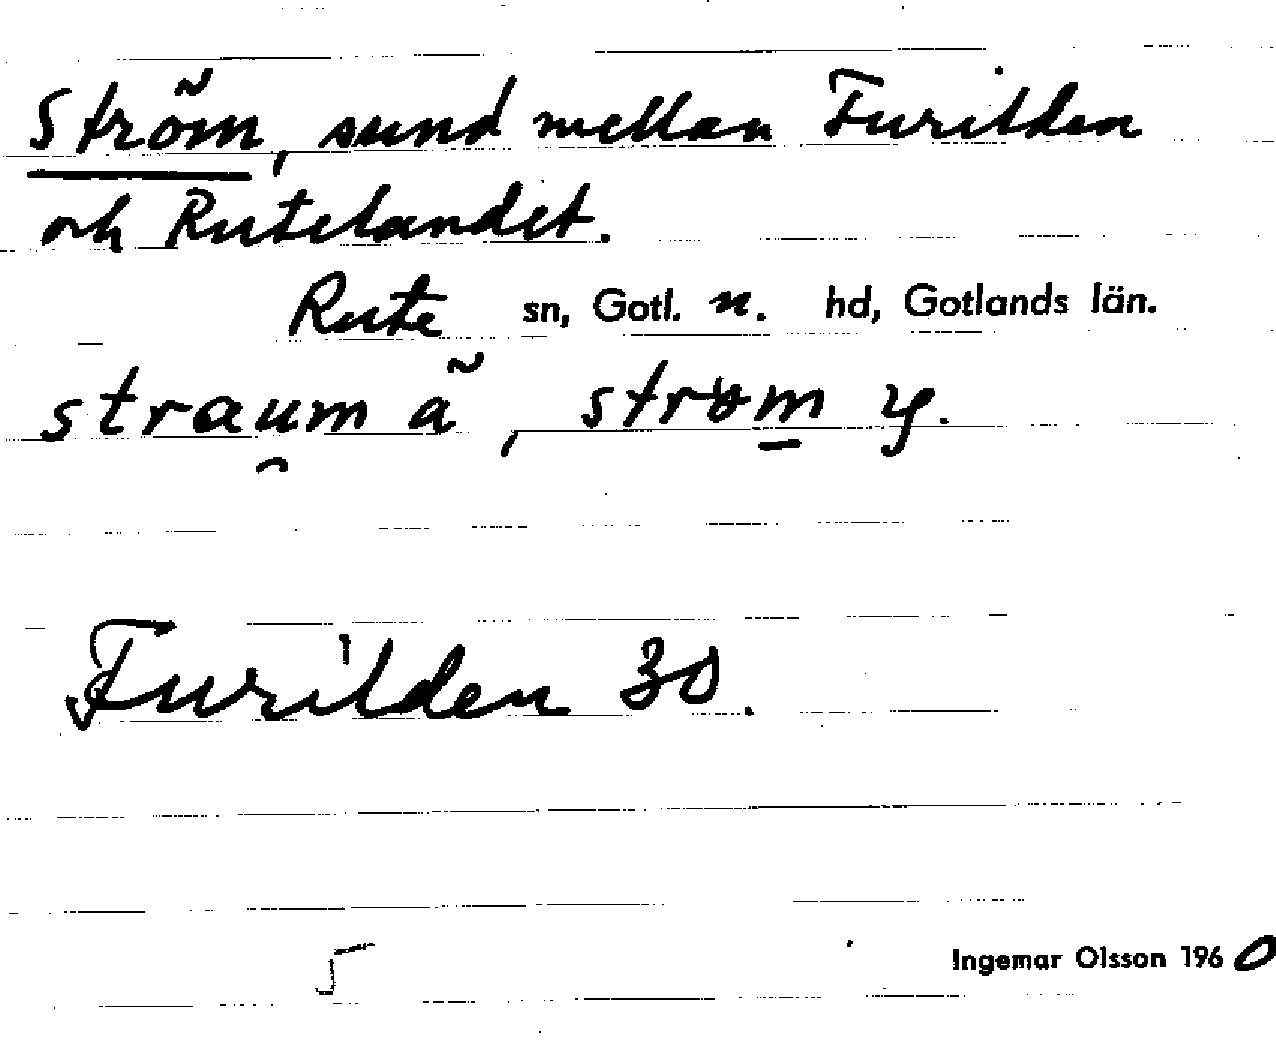 Ström, sund mellan Furilden
och Rutelandet.
Rute sn, Gotl. n. hd, Gotlands län.
strau̯m ã, strøm̲ y.
Furilden 30.
5
Ingemar Olsson 1960